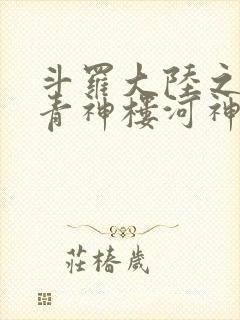 斗羅大陸之
青神樓河神
莊椿歲